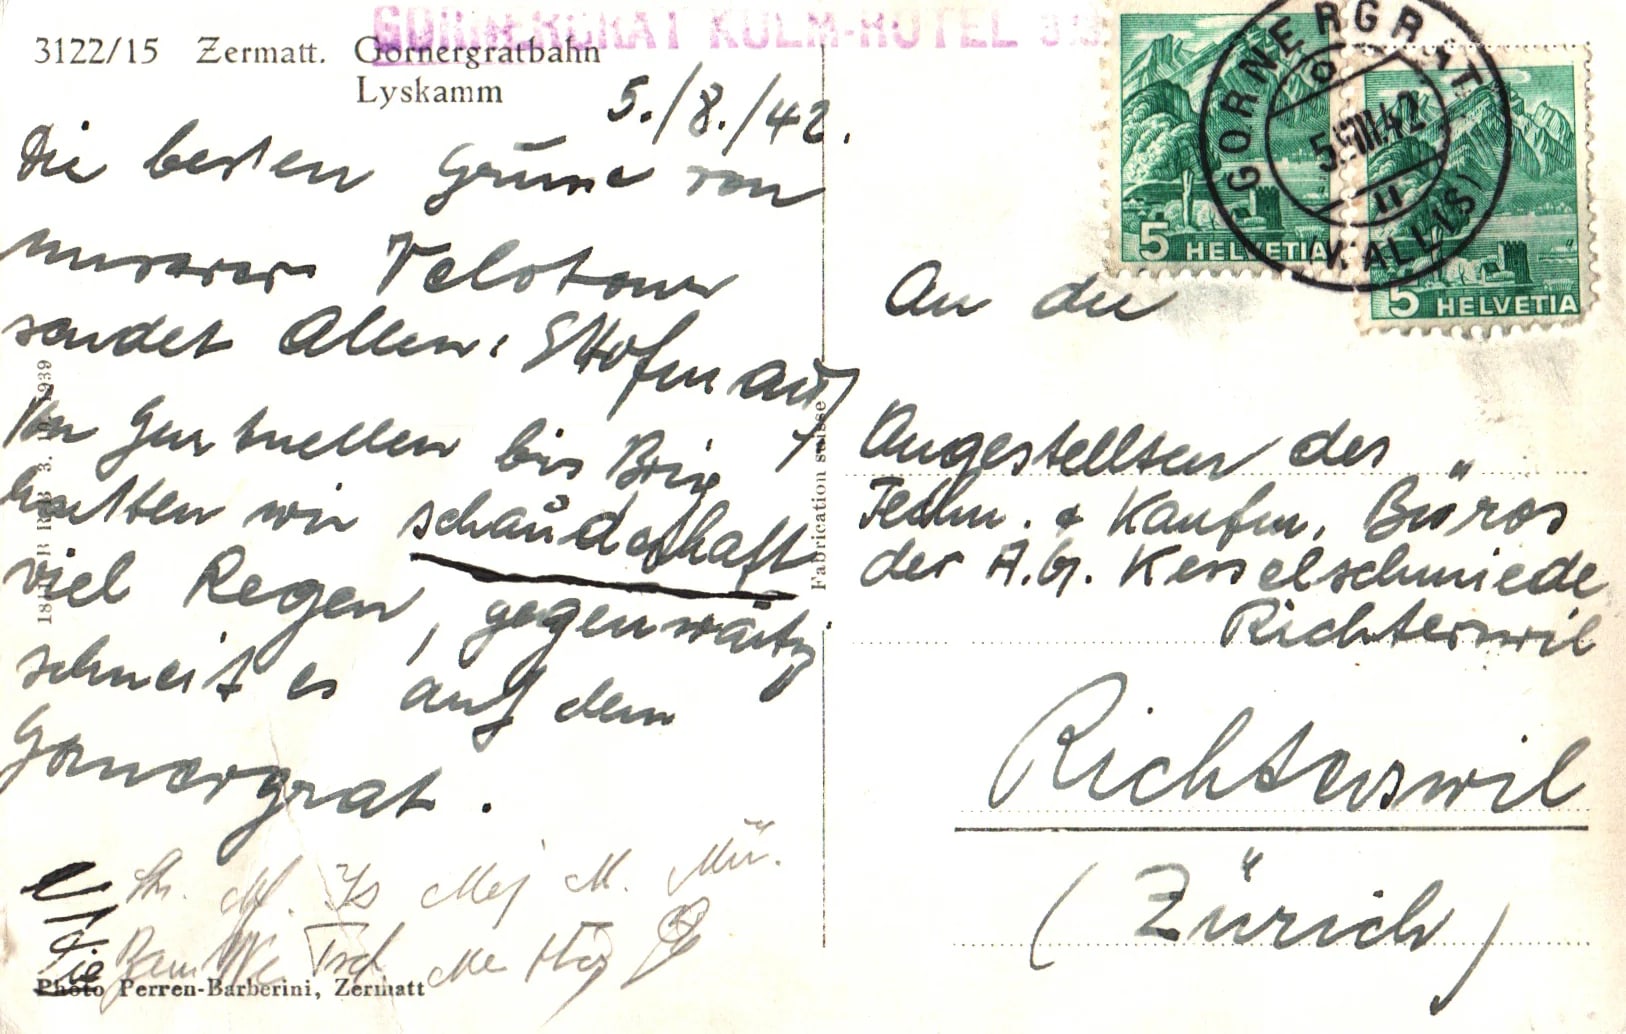 GORNERGRAT KULM-HOTEL
3122/15 Zermatt. Gornergratbahn
Lyskamm
5./8./42.
Die besten Grüsse von
unserer Velotour
sendet Allen: EHofmann
Von Gurtnellen bis Brig
hatten wir schauderhaft
viel Regen, gegenwärtg
schneit es auf dem
Gornergrat.
Photo Perren-Barberini, Zermatt
Fabrication suisse
1939
5 HELVETIA
5 HELVETIA
GORNERGRAT
5.VIII.42
(WALLIS)
An die
Angestellten des
Techn. & Kaufm. Büros
der A.G. Kesselschmiede
Richterswil
Richterswil
(Zürich)